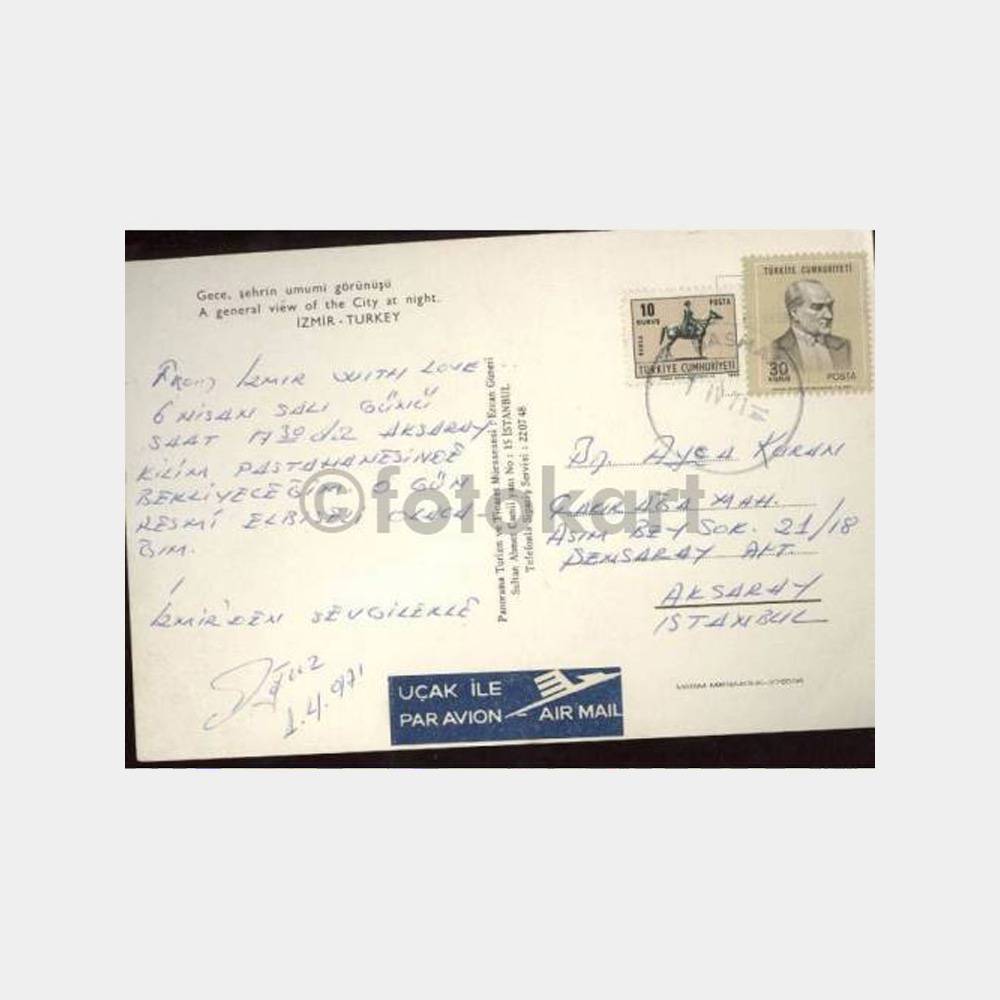 Gece, şehrin umumi görünüşü
A general view of the City at night.
İZMİR - TURKEY
FROM İZMİR WITH LOVE
6 NİSAN SALI GÜNÜ
SAAT 17 30 da AKSARAY
KİLİM PASTAHANESİNDE
BEKLİYECEĞİM. O GÜN
RESMİ ELBİSELİ OLACA
ĞIM.
İZMİR'DEN SEVGİLERLE
Oğuz
1.4.971
Panorama Turizm ve Ticaret Müessesesi Ezcan Güneri
Sultan Ahmet Camii No : 15 İSTANBUL
Telefonla Sipariş Servisi : 22 07 48
10
KURUŞ
POSTA
BURSA
TÜRKİYE CUMHURİYETİ
TÜRKİYE CUMHURİYETİ
30
KURUŞ
POSTA
Bn. AYÇA KARAN
ÇAKIRAĞA MAH.
ASIM BEY SOK. 21/18
ŞENSARAY APT.
AKSARAY
İSTANBUL
UÇAK İLE
PAR AVION - AIR MAIL
©fotokart